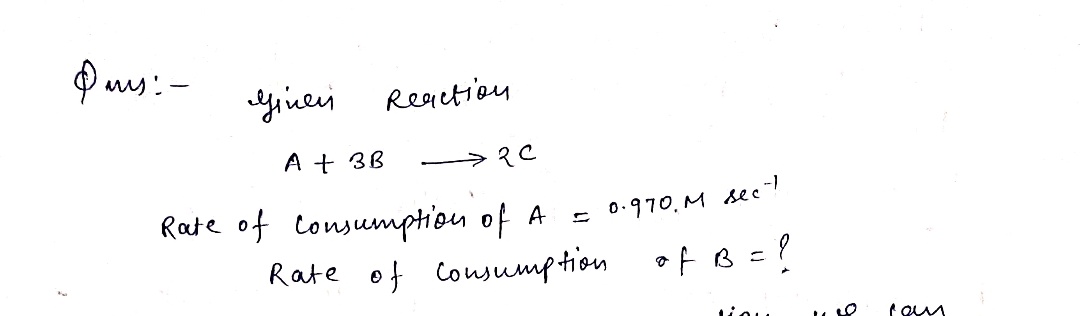 Ans:-
Given Reaction
A + 3B ⟶ 2C
Rate of Consumption of A = 0.970.M sec⁻¹
Rate of Consumption of B = ?
can